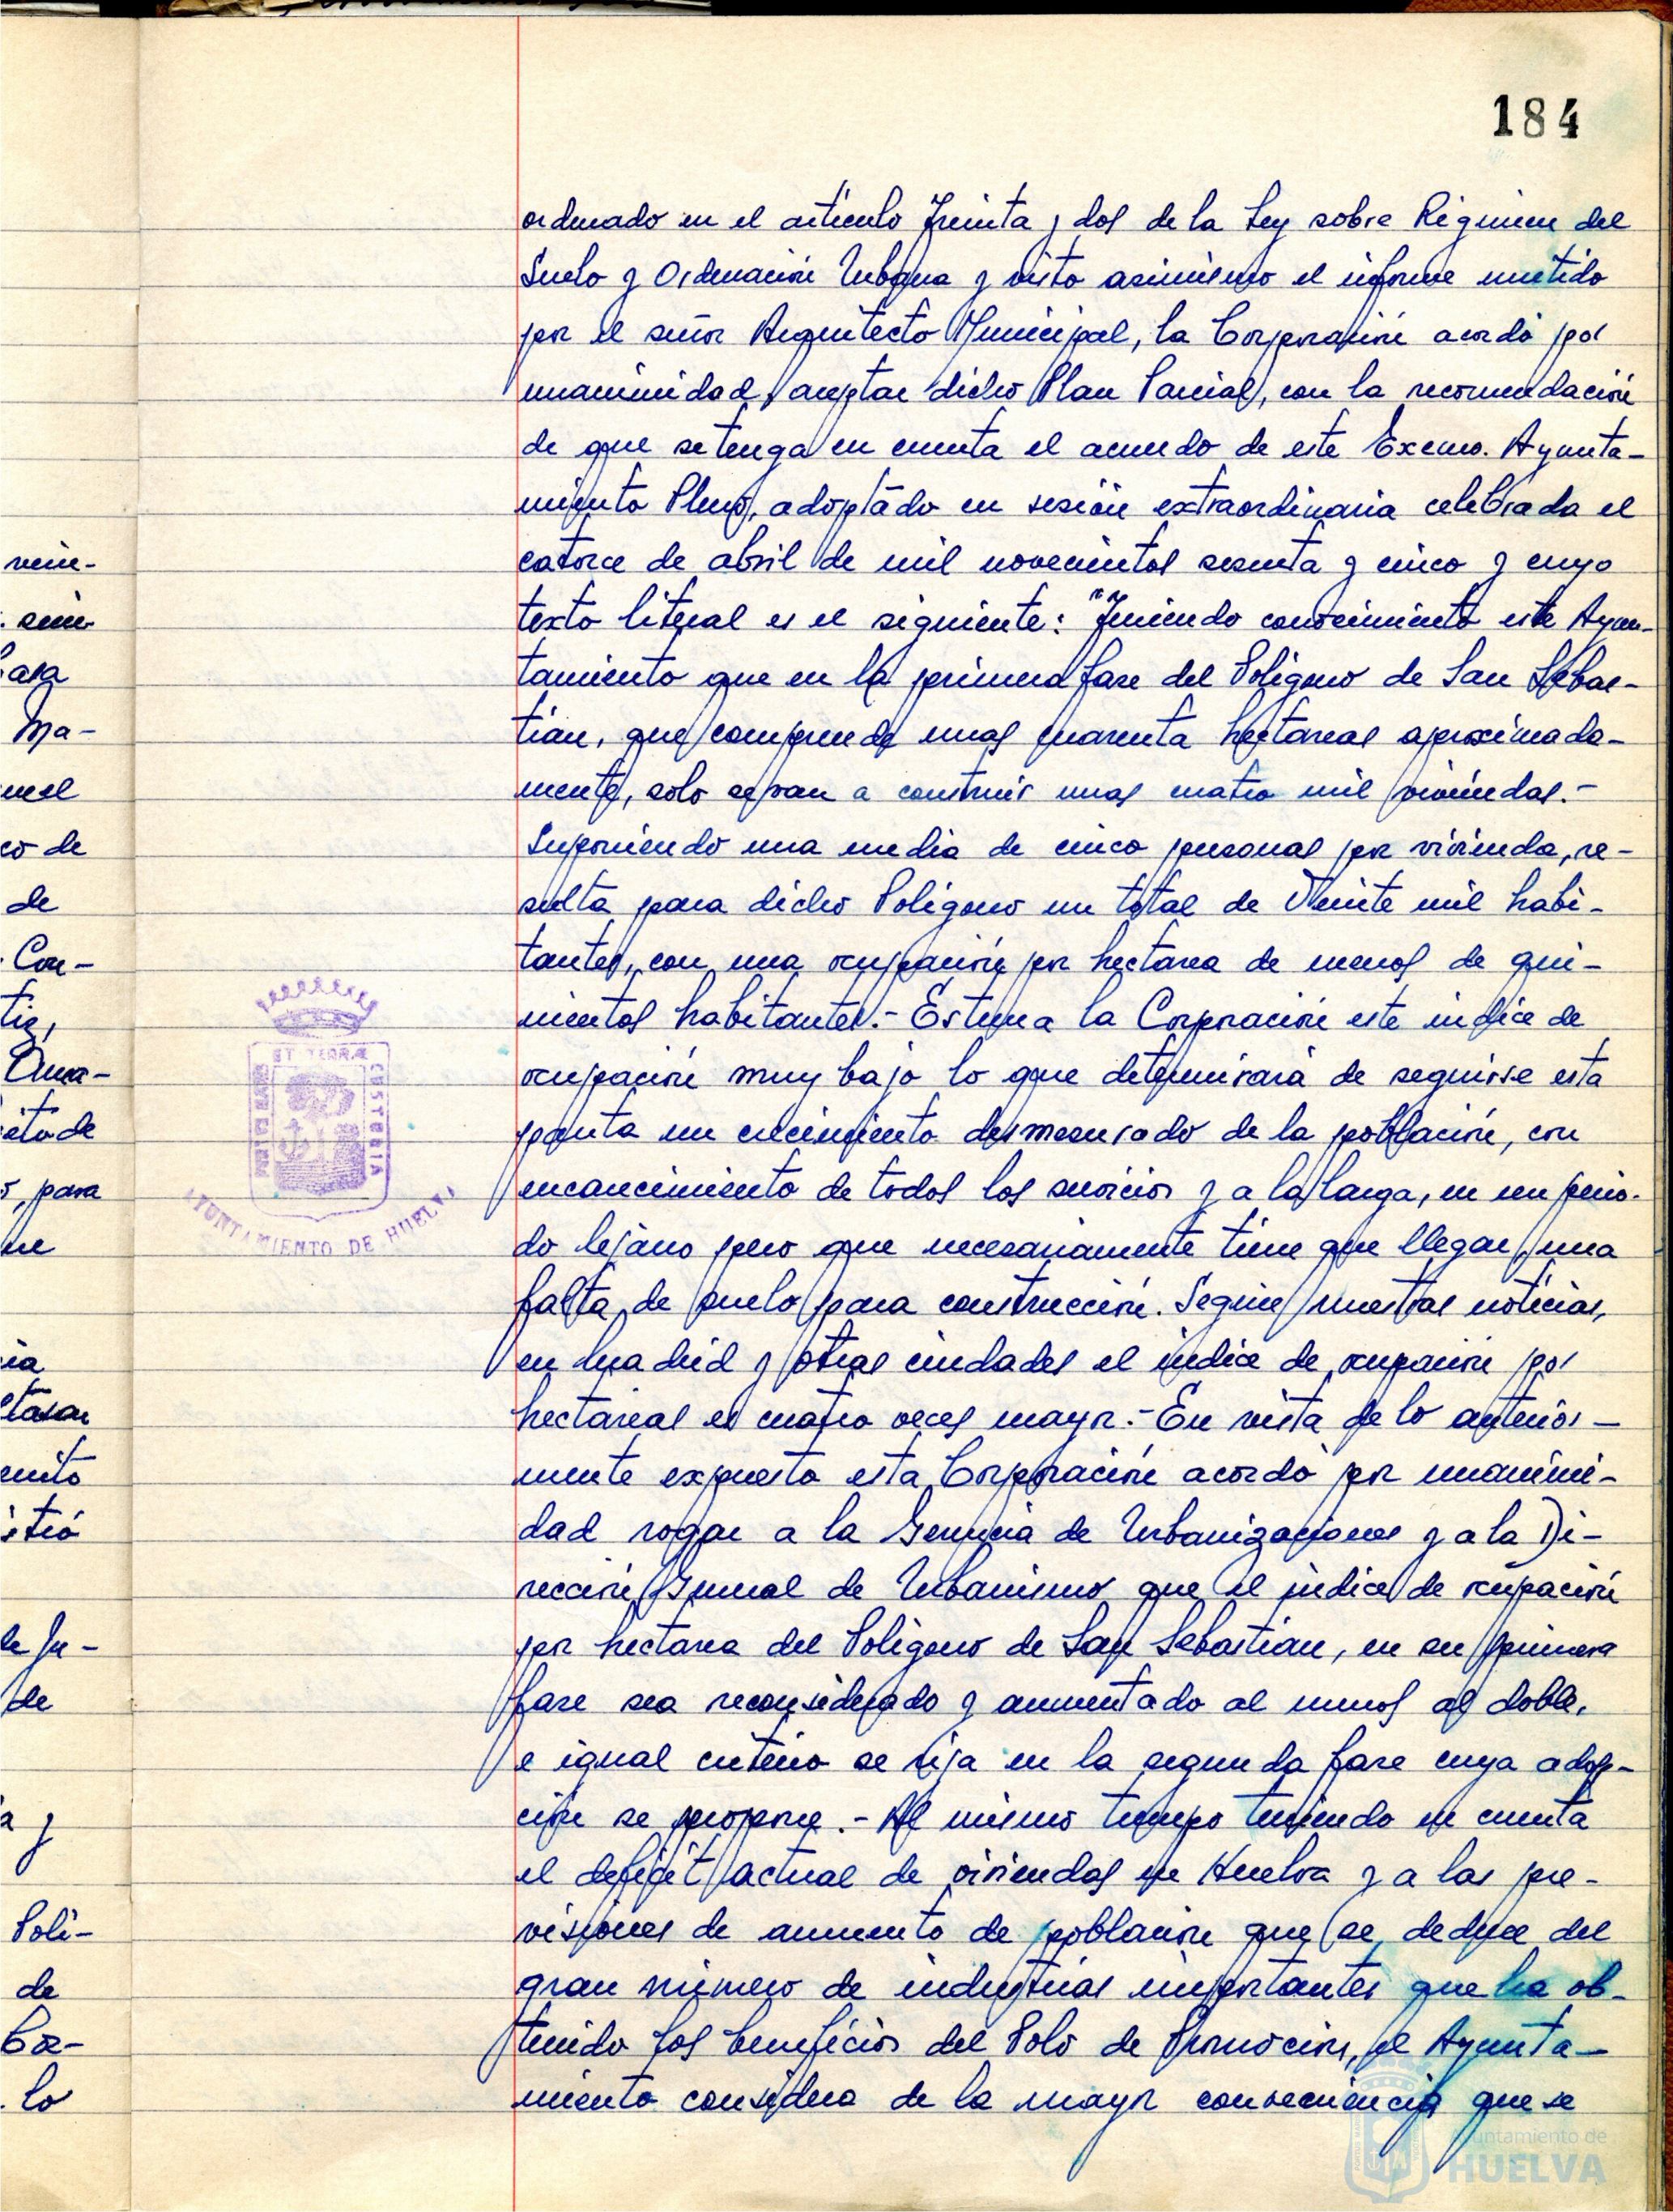 184
ordenado en el artículo Treinta y dos de la Ley sobre Régimen del
Suelo y Ordenación Urbana y visto asimismo el informe emitido
por el señor Arquitecto Municipal, la Corporación acordó por
unanimidad, aceptar dicho Plan Parcial, con la recomendación
de que se tenga en cuenta el acuerdo de este Excmo. Ayunta-
miento Pleno, adoptado en sesión extraordinaria celebrada el
catorce de abril de mil novecientos sesenta y cinco y cuyo
texto literal es el siguiente: "Teniendo conocimiento este Ayun-
tamiento que en la primera fase del Poligono de San Sebas-
tián, que comprende unas cuarenta hectareas aproximada-
mente, solo se van a construir unas cuatro mil viviendas.-
Suponiendo una media de cinco personas por vivienda, re-
sulta para dicho Poligono un total de Veinte mil habi-
tantes, con una ocupación por hectarea de menos de qui-
nientos habitantes.- Estima la Corporación este indice de
ocupación muy bajo lo que determinará de seguirse esta
pauta un crecimiento desmesurado de la población, con
encarecimiento de todos los servicios y a la larga, en un perio-
do lejano pero que necesariamente tiene que llegar, una
falta de suelo para construcción. Según nuestras noticias,
en Madrid y otras ciudades el indice de ocupación por
hectareas es cuatro veces mayor.- En vista de lo anterior-
mente expuesto esta Corporación acordó por unanimi-
dad rogar a la Gerencia de Urbanizaciones y a la Di-
rección General de Urbanismo que el indice de ocupación
por hectarea del Poligono de San Sebastián, en su primera
fase sea reconsiderado y aumentado al menos al doble,
e igual criterio se rija en la segunda fase cuya adop-
ción se propone.- Al mismo tiempo teniendo en cuenta
el deficit actual de viviendas en Huelva y a las pre-
visiones de aumento de población que se deduce del
gran número de industrias importantes que ha ob-
tenido los beneficios del Polo de Promoción, el Ayunta-
miento considera de la mayor conveniencia que se
Ma-
co de
de
Con-
para
de
Poli-
de
lo
PORTUS MARIS
ET TERRAE
CUSTODIA
AYUNTAMIENTO DE HUELVA
Ayuntamiento de
HUELVA